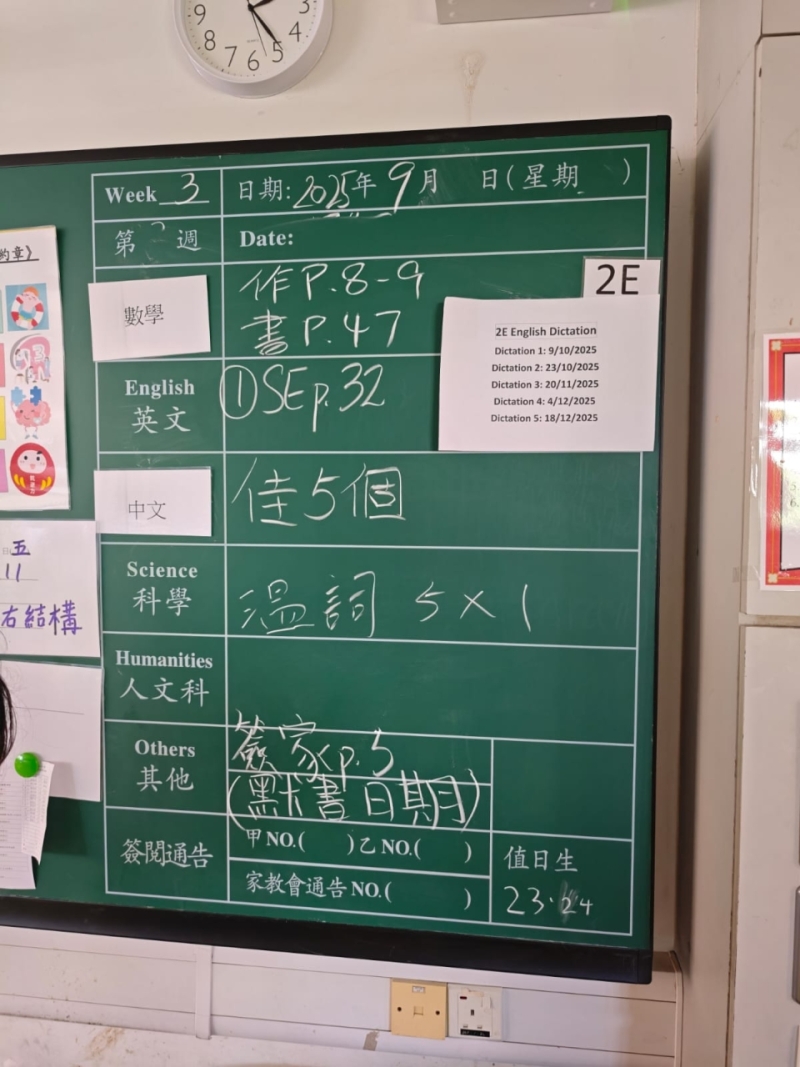 9
8
7
6
5
4
3
2
Week 3
日期: 2025年9月 日(星期 )
第 週
Date:
數學
作P.8-9
書P.47
2E
2E English Dictation
Dictation 1: 9/10/2025
Dictation 2: 23/10/2025
Dictation 3: 20/11/2025
Dictation 4: 4/12/2025
Dictation 5: 18/12/2025
English
英文
①SE p.32
中文
佳5個
Science
科學
溫詞 5×1
Humanities
人文科
Others
其他
簽家p.5
(默書日期)
簽閱通告
甲NO.( )乙NO.( )
家教會通告NO.( )
值日生
23·24
約章》
五
11
右結構